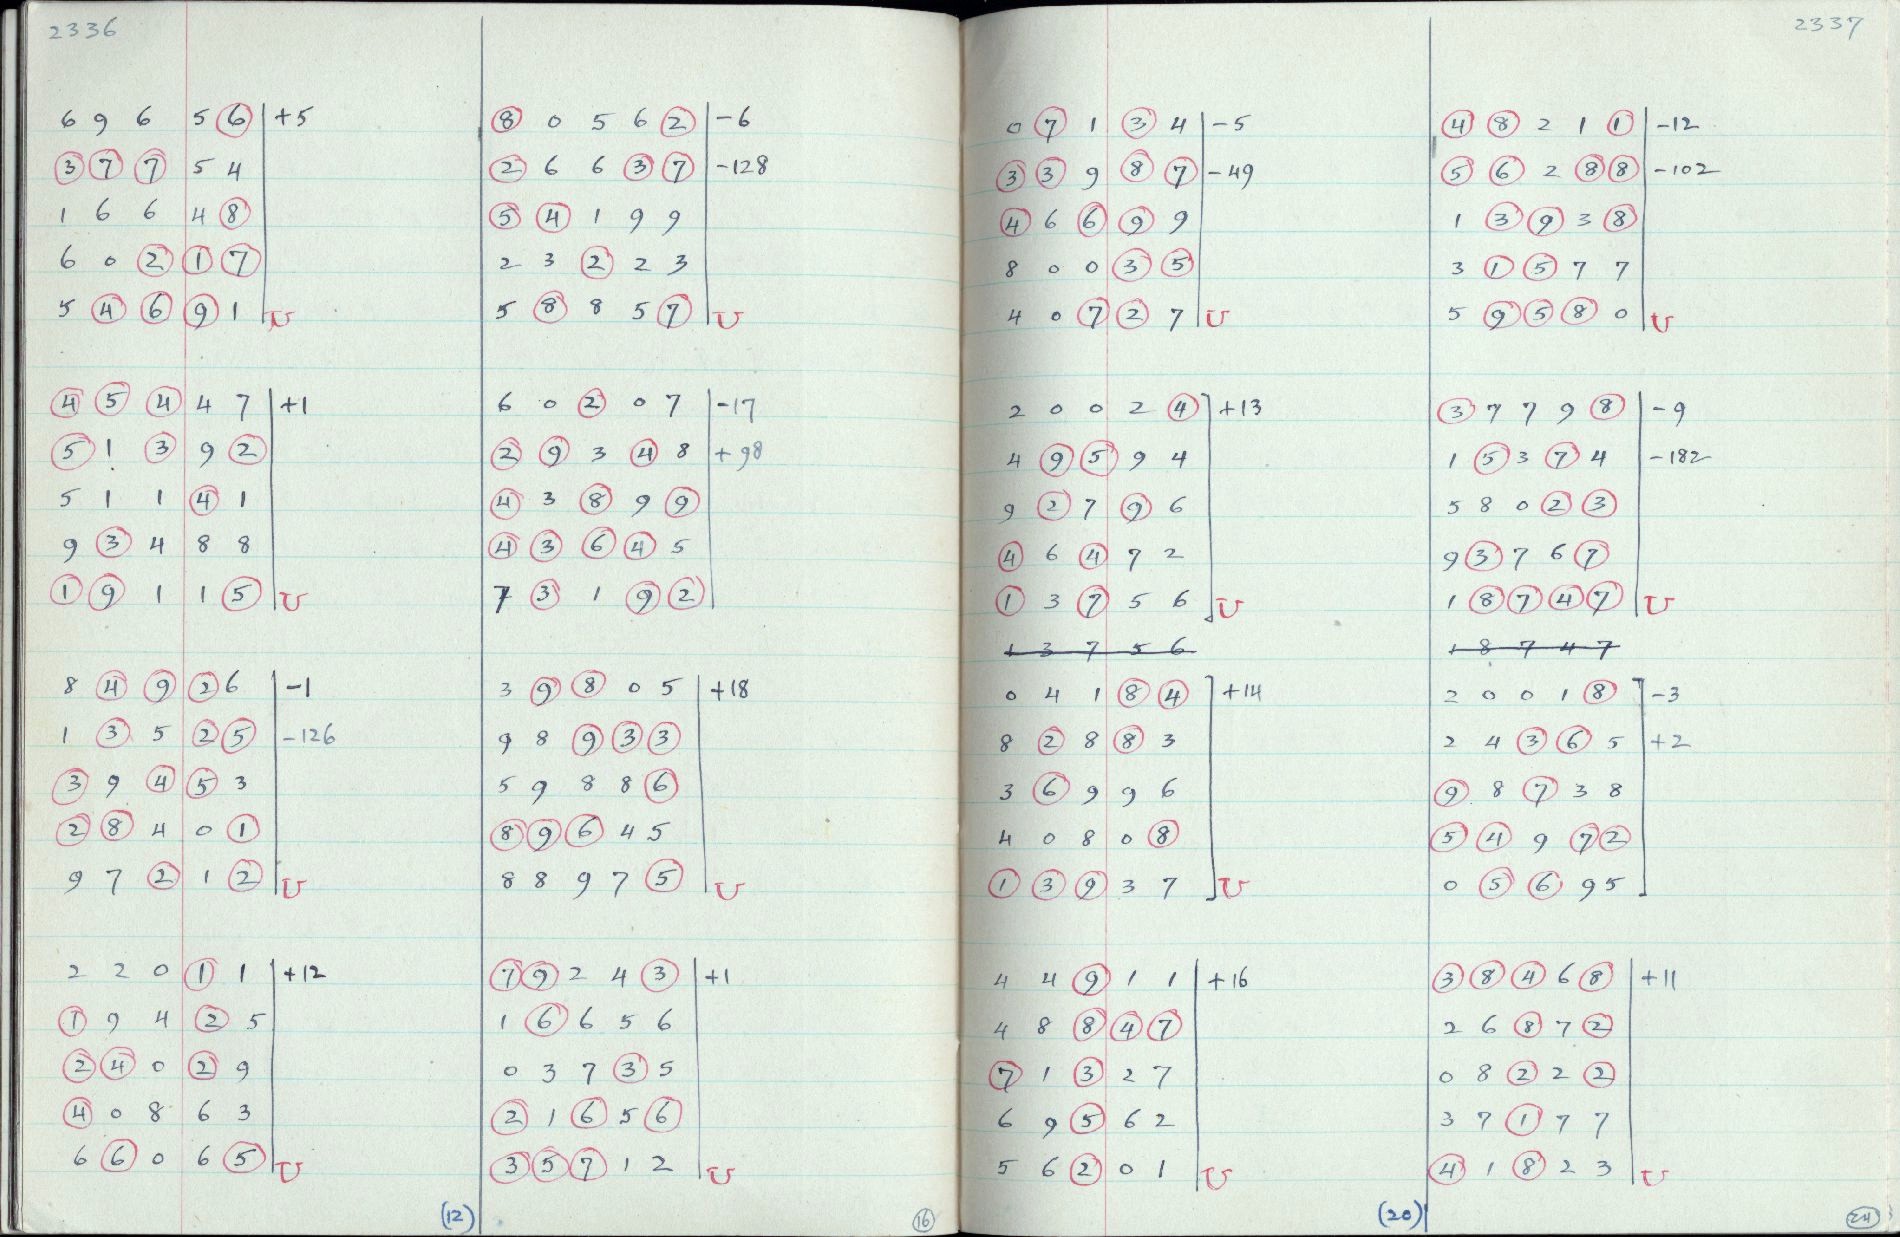 2336
6 9 6 5 6 +5
3 7 7 5 4
1 6 6 4 8
6 0 2 1 7
5 4 6 9 1 U
4 5 4 4 7 +1
5 1 3 9 2
5 1 1 4 1
9 3 4 8 8
1 9 1 1 5 U
8 4 9 2 6 -1
1 3 5 2 5 -126
3 9 4 5 3
2 8 4 0 1
9 7 2 1 2 U
2 2 0 1 1 +12
1 9 4 2 5
2 4 0 2 9
4 0 8 6 3
6 6 0 6 5 U
(12)
8 0 5 6 2 -6
2 6 6 3 7 -128
5 4 1 9 9
2 3 2 2 3
5 8 8 5 7 U
6 0 2 0 7 -17
2 9 3 4 8 +98
4 3 8 9 9
4 3 6 4 5
7 3 1 9 2
3 9 8 0 5 +18
9 8 9 3 3
5 9 8 8 6
8 9 6 4 5
8 8 9 7 5 U
7 9 2 4 3 +1
1 6 6 5 6
0 3 7 3 5
2 1 6 5 6
3 5 7 1 2 U
16
2337
0 7 1 3 4 -5
3 3 9 8 7 -49
4 6 6 9 9
8 0 0 3 5
4 0 7 2 7 U
2 0 0 2 4 +13
4 9 5 9 4
9 2 7 9 6
4 6 4 7 2
1 3 7 5 6 U
1 3 7 5 6
0 4 1 8 4 +14
8 2 8 8 3
3 6 9 9 6
4 0 8 0 8
1 3 9 3 7 U
4 4 9 1 1 +16
4 8 8 4 7
7 1 3 2 7
6 9 5 6 2
5 6 2 0 1 U
(20)
4 8 2 1 1 -12
5 6 2 8 8 -102
1 3 9 3 8
3 1 5 7 7
5 9 5 8 0 U
3 7 7 9 8 -9
1 5 3 7 4 -182
5 8 0 2 3
9 3 7 6 7
1 8 7 4 7 U
1 8 7 4 7
2 0 0 1 8 -3
2 4 3 6 5 +2
9 8 7 3 8
5 4 9 7 2
0 5 6 9 5
3 8 4 6 8 +11
2 6 8 7 2
0 8 2 2 2
3 7 1 7 7
4 1 8 2 3 U
24